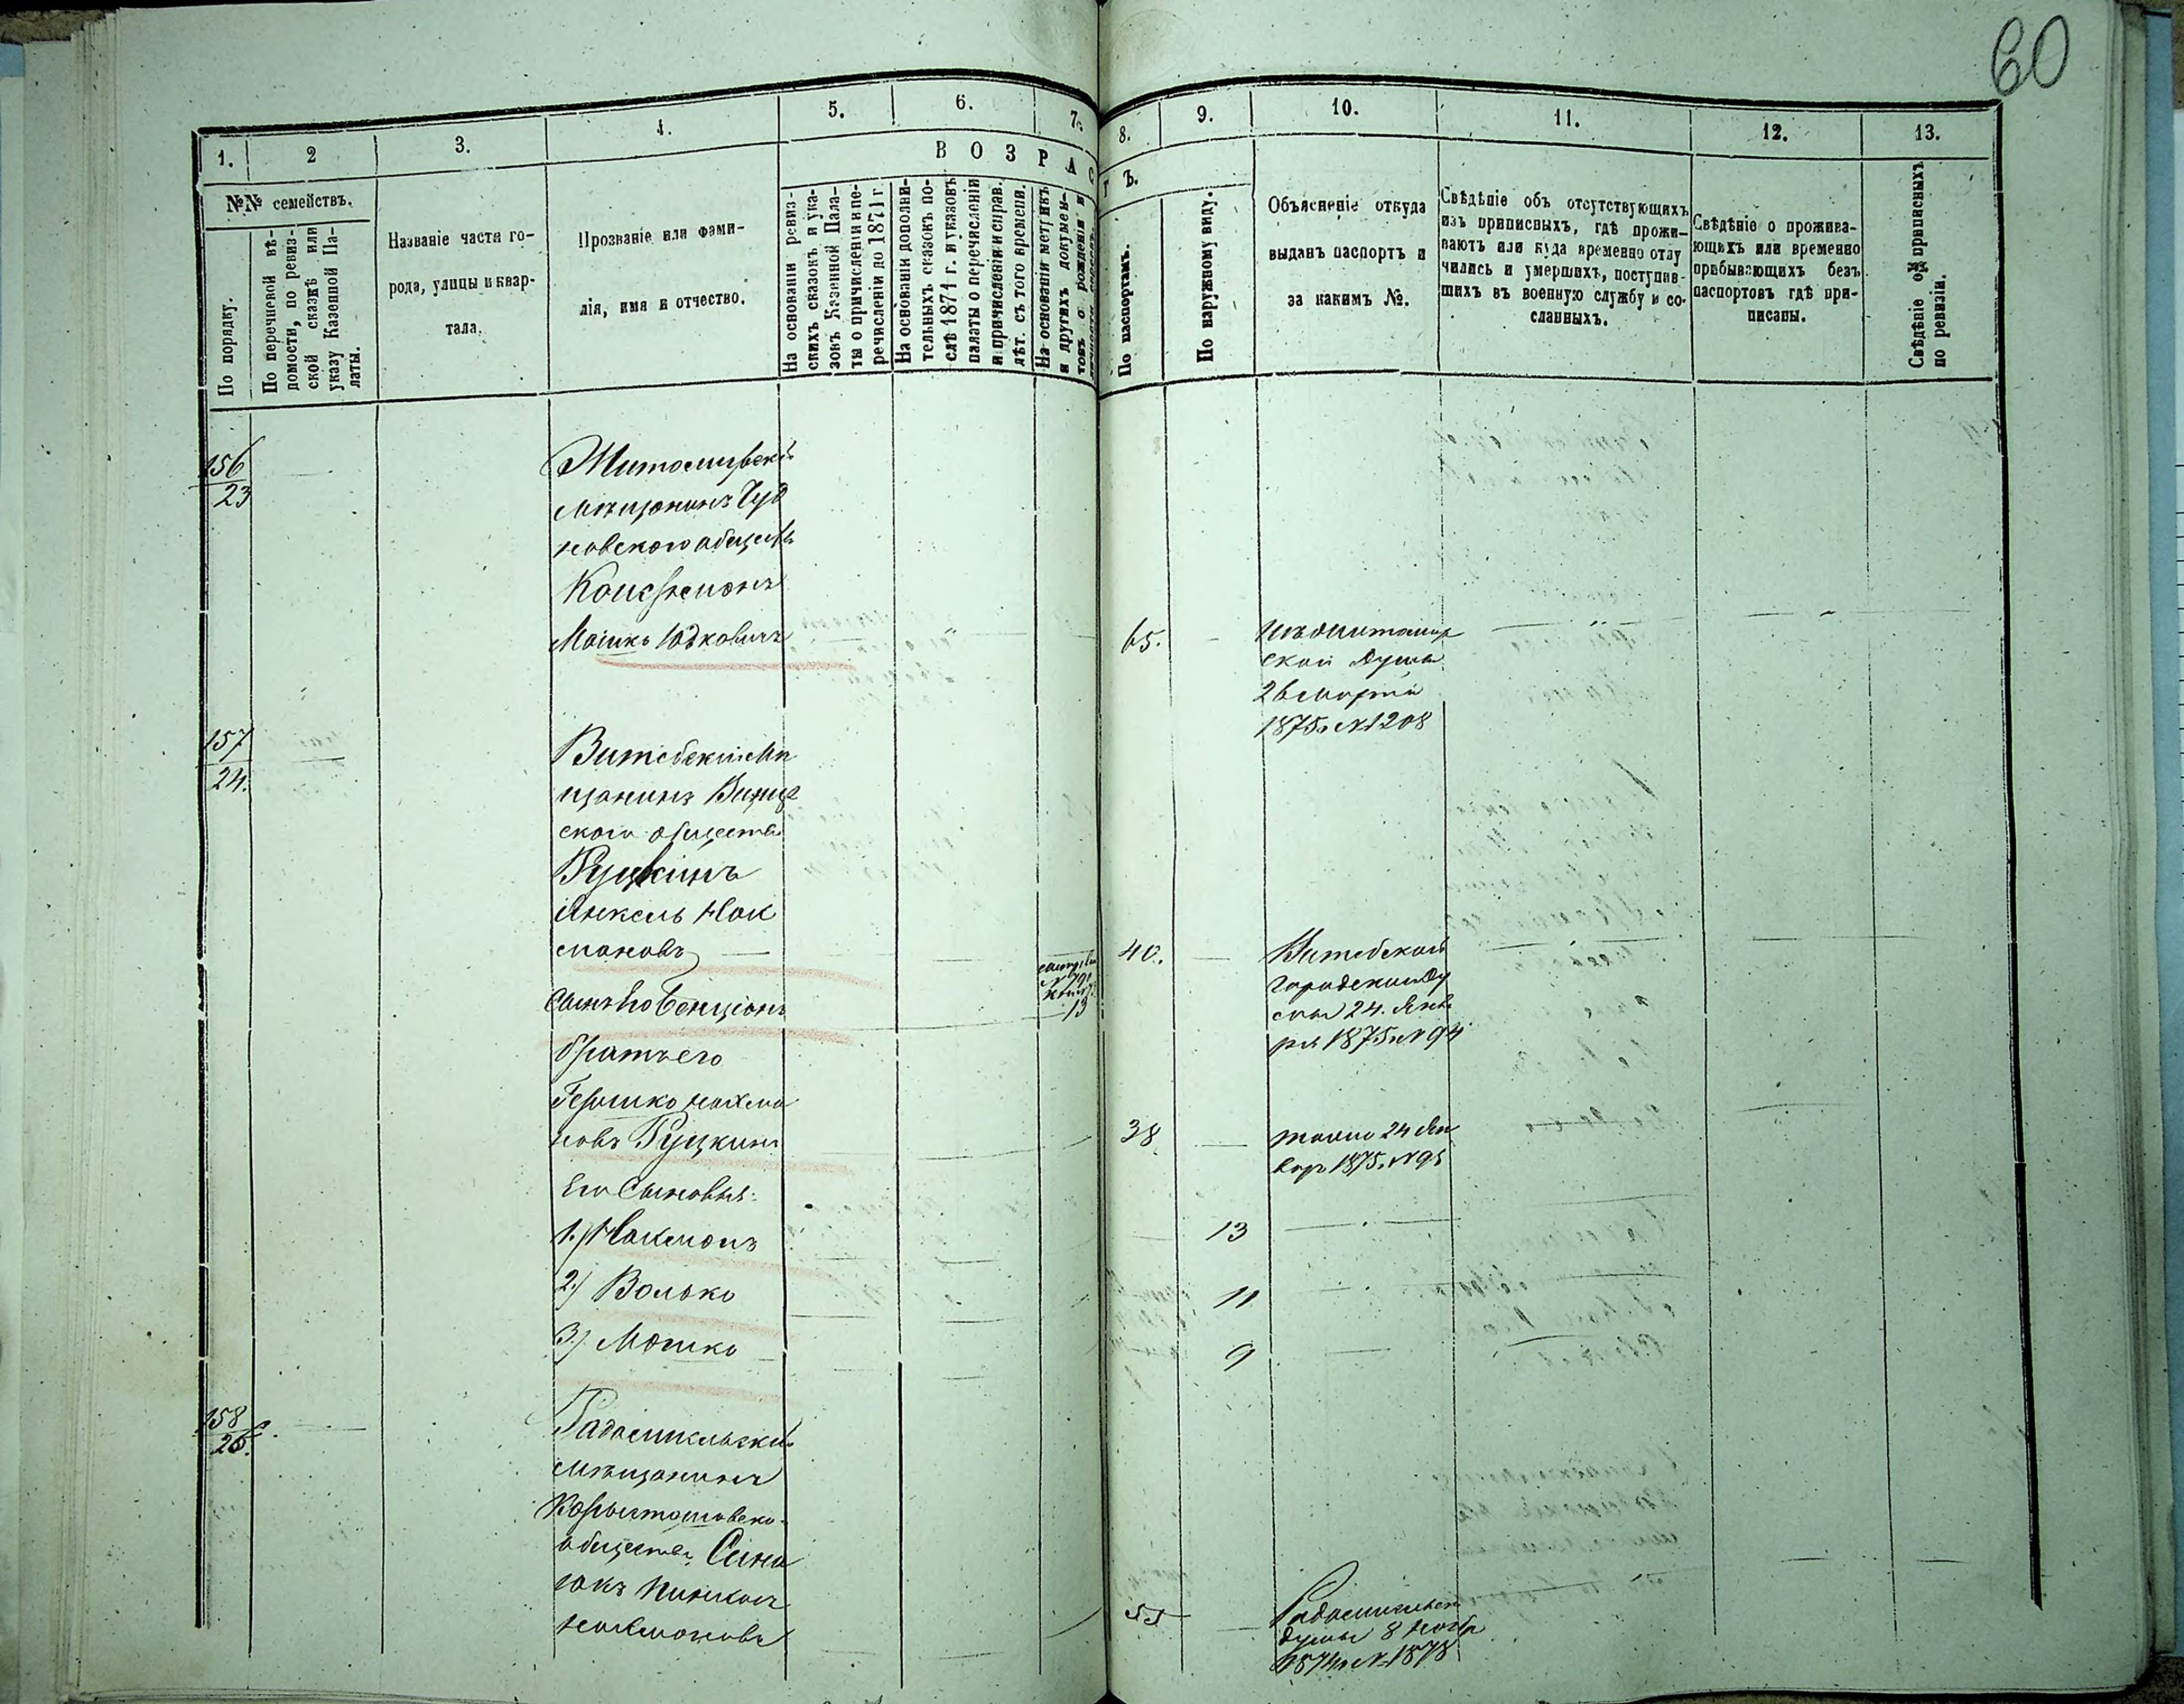 60
1. 2 3. 4. 5. 6. 7. 8. 9. 10. 11. 12. 13.
В О З Р А С Т Ъ.
№№ семействъ.
По порядку.
По перечневой вѣ-
домости, по ревиз-
ской сказкѣ или
указу Казенной Па-
латы.
Названіе части го-
рода, улицы и квар-
тала.
Прозваніе или фами-
лія, имя и отчество.
На основаніи ревиз-
скихъ сказокъ и ука-
зовъ Казенной Пала-
ты о причисленіи и пе-
речисленіи до 1871 г.
На основаніи дополни-
тельныхъ сказокъ по-
слѣ 1871 г. и указовъ
палаты о перечисленіи
и причисленіи и справ.
лѣт. съ того времени.
На основаніи метрикъ
и другихъ докумен-
товъ о рожденіи и
По паспортамъ.
По наружному виду.
Объясненіе откуда
выданъ паспортъ и
за какимъ №.
Свѣдѣніе объ отсутствующихъ
изъ приписныхъ, гдѣ прожи-
ваютъ или куда временно отлу
чились и умершихъ, поступив-
шихъ въ военную службу и со-
сланныхъ.
Свѣдѣніе о прожива-
ющихъ или временно
прибывающихъ безъ
паспортовъ гдѣ при-
писаны.
Свѣдѣніе об приписныхъ
по ревизіи.
156
23
Житомирскій
мѣщанинъ Чуд
новского обществ
Мошко Юдковичъ
65.
Изъ Житомир
ской Думы
26 марта
1875 г № 1208
157
24.
Витебскій мѣ
щанинъ
ского общества
Руцкинъ
Янкель Нах
мановъ
40.
Витебской
Городской Ду
мы 24. Янва
ря 1875 г № 94
Сынъ его Бенціонъ
13
братъ его
Гершко Нахма
новъ Руцкинъ
38
тоже 24 Ян
варя 1875 г № 95
Его Сыновья:
1.) Нахманъ
13
2.) Волько
11
3.) Мошко
9
158
25.
Радомысльскій
мѣщанинъ
Коростышовско
общества Сини
акъ Пинхасъ
Нахмановъ
55
Радомысльск
думы 8 Ноябр
1874 г № 1878